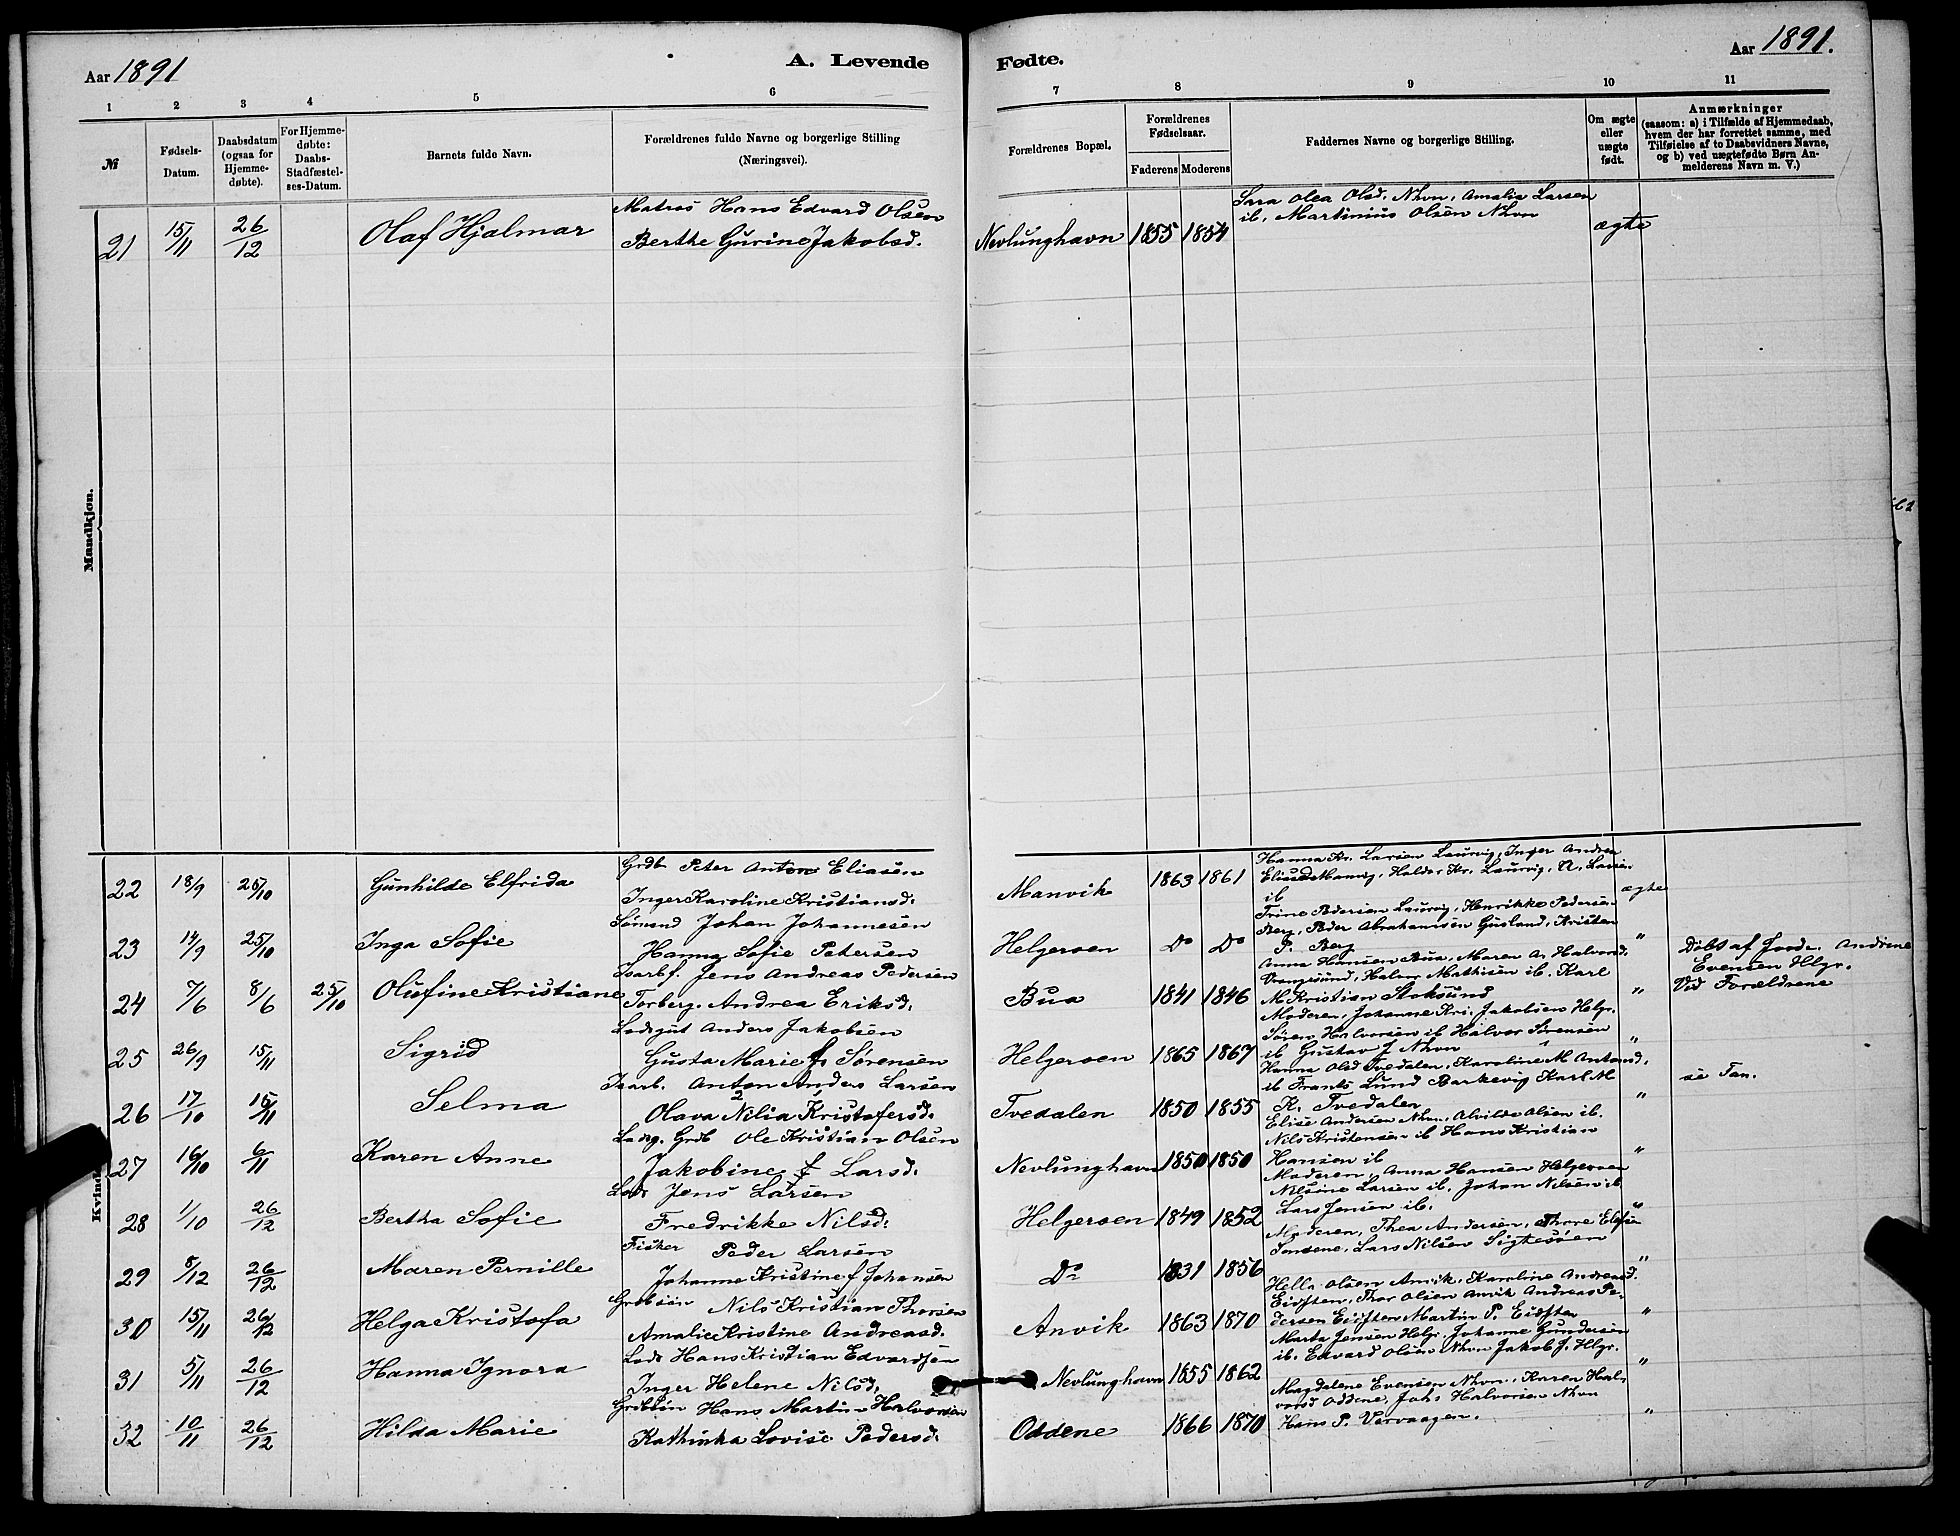 Aar 1891
A. Levende Fødte.
Aar 1891.
1 2 3 4 5 6 7 8 9 10 11
№
Fødsels-Datum.
Daabsdatum (ogsaa for Hjemmedøbte).
For Hjemmedøbte: Daabs-Stadfæstelses-Datum.
Barnets fulde Navn.
Forældrenes fulde Navne og borgerlige Stilling
(Næringsvei).
Forældrenes Bopæl.
Forældrenes Fødselsaar.
Faderens Moderens
Faddernes Navne og borgerlige Stilling.
Om ægte eller uægte født.
Anmærkninger
(saasom: a) i Tilfælde af Hjemmedaab,
hvem der har forrettet samme, med
Tilføielse af to Daabsvidners Navne,
og b) ved uægtefødte Børn Anmelderens Navn m. V.)
Mandkjøn.
21 15/11 26/12 Olaf Hjalmar
Matros Hans Edvard Olsen
Berthe Gurine Jakobsd.
Nevlunghavn 1855 1854
Sara Olea Olsd. Nhvn, Amalia Larsen
ib, Martinius Olsen Nhvn
ægte
Kvind
22 18/9 25/10 Gunhilde Elfrida
Grdb Peter Anton Eliasen
Inger Karoline Kristiansd.
Manvik 1863 1861
Hanna Kr. Larsen Laurvig, Inger Andrea
Manvig, Laurvig,
ib
ægte
23 14/9 25/10 Inga Sofie
Sømand Johan Johannesen
Hanna Sofie Petersen
Helgeroen Do Do
Trine Pedersen Laurvig, Henrikke Pedersen
Berg, Peder Abrahamsen Gusland, Kristen
P. Berg
"
24 7/6 8/6 25/10 Olufine Kristiane
Jens Andreas Pedersen
Torberg. Andrea Eriksd.
Bua 1841 1846
Anna Hansen Bua, Maren A. Halvorsd.
Vrangsund, Mathisen ib. Karl
M Kristian Stoksund
"
Døbt af Jordm. Andrine
Evensen Hlgr.
Ved Forældrene
25 26/9 15/11 Sigrid
Lodsgut Anders Jakobsen
Gusta Marie f. Sørensen
Helgeroen 1865 1867
Moderen, Johanne Kri. Jakobsen Helgr.
Søren Halvorsen ib Halvor Sørensen
ib Gustav J Nhvn
"
26 17/10 15/11 Selma
Isarb. Anton Anders Larsen
Olava Nilia Kristofersd.
Tvedalen 1850 1855
Hanna Olsd Tvedalen, Karoline M Antonsd.
ib Frants Lund Barkevig Karl M
K. Tvedalen
"
se Fan.
27 16/10 6/11 Karen Anne
Ladsg. Grdb Ole Kristian Olsen
Jakobine f Larsd.
Nevlunghavn 1850 1850
Elise Andersen Nhvn, Alvilde Olsen ib.
Nils Kristensen ib Hans Kristian
Hansen ib
"
28 1/10 26/12 Bertha Sofie
Lods Jens Larsen
Fredrikke Nilsd.
Helgeroen 1849 1852
Moderen, Anna Hansen Helgeroen
Nilsine Larsen ib. Johan Nilsen ib
Lars Jensen ib.
"
29 8/12 26/12 Maren Pernille
Fisker Peder Larsen
Johanne Kristine f Johansen
Do 1831 1856
Moderen, Thea Andersen, Thore
Lars Nilsen
"
30 15/11 26/12 Helga Kristofa
Grdbsøn Nils Kristian Thorsen
Amalie Kristine Andreasd.
Anvik 1863 1870
Hella Olsen Anvik, Karoline Andreasd.
Eidsten, Thor Olsen Anvik Andreas Pedersen
Eidsten Martin P. Eidsten
"
31 5/11 26/12 Hanna Ignora
Lods Hans Kristian Edvardsen
Inger Helene Nilsd.
Nevlunghavn 1855 1862
Marta Jensen Helgr. Johanne Gundersen
ib. Edvard Olsen Nhvn Jakob J. Hlgr.
"
32 10/11 26/12 Hilda Marie
Grdbsøn Hans Martin Halvorsen
Kathinka Lovise Pedersd.
Oddene 1866 1870
Magdalene Evensen Nhvn, Karen Halvorsd
Oddene, Johs Halvorsen Nhvn
Hans P. Varvaagen.
"